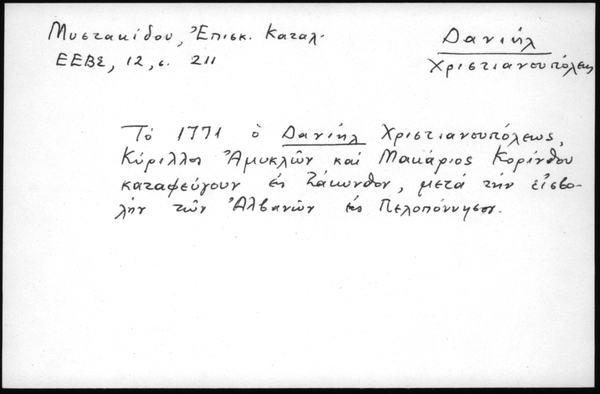 Μυστακίδου, Ἐπισκ. Καταλ.
ΕΕΒΣ, 12, σ. 211
Δανιήλ
Χριστιανουπόλεως
Τό 1771 ὁ Δανιήλ Χριστιανουπόλεως,
Κύριλλος Ἀμυκλῶν καί Μακάριος Κορίνθου
καταφεύγουν εἰς Ζάκυνθον, μετά τήν εἰσβο-
λήν τῶν Ἀλβανῶν εἰς Πελοπόννησον.